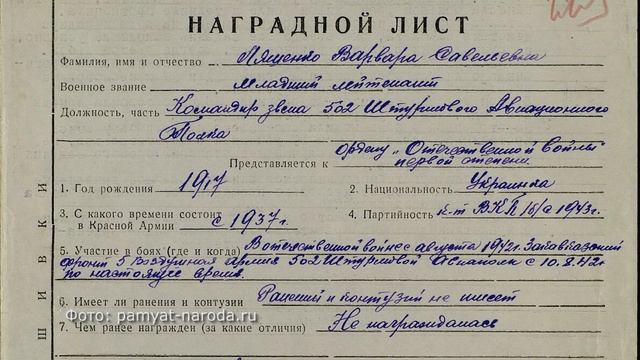 НАГРАДНОЙ ЛИСТ
Фамилия, имя и отчество Ляшенко Варвара Савельевна
Военное звание младший лейтенант
Должность, часть Командир звена 502 Штурмового Авиационного
Полка
ордену „Отечественной войны"
Представляется к первой степени.
1. Год рождения 1917 2. Национальность Украинка
3. С какого времени состоит
в Красной Армии с 1937г. 4. Партийность к-т ВКП/б/с 1943г.
5. Участие в боях (где и когда) В отечественной войне с августа 1942г. Закавказский
фронт 5 Воздушная Армия 502 Штурмовой Авиаполк с 10.8.42г
по настоящее время.
6. Имеет ли ранения и контузии Ранений и контузий не имеет
7. Чем ранее награжден (за какие отличия) Не награждалась
ШИВКИ
Фото: pamyat-naroda.ru